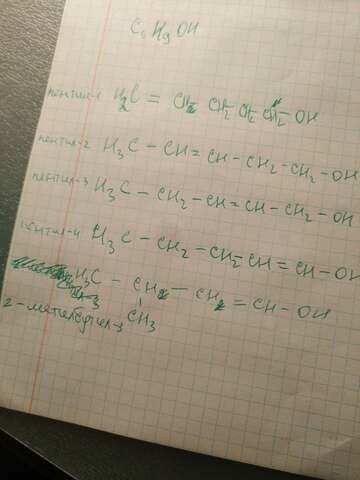 C₅H₉OH
пентил-1 H₂C = CH₂ CH₂ CH₂ CH₂-OH
пентил-2 H₃C - CH = CH - CH₂ - CH₂ - OH
пентил-3 H₃C - CH₂ - CH = CH - CH₂ - OH
пентил-4 H₃C - CH₂ - CH₂ CH = CH - OH
H₃C - CH₂ - CH₂ = CH - OH
CH₃
2-метилбутил-3